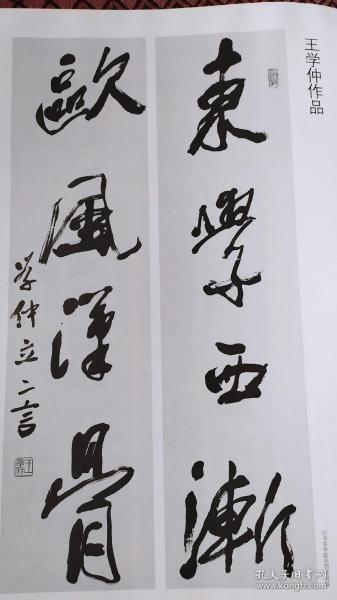 王学仲作品
東學西漸
歐風漢骨
学仲立言
孔夫子旧书网